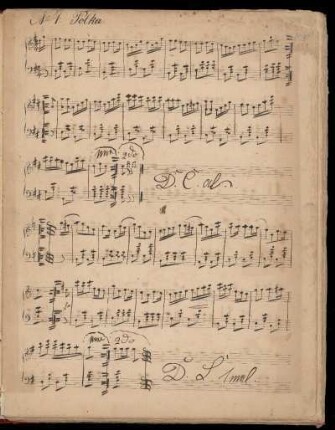 Nº 1 Polka
1ma 2da
D. C. al
1ma 2do
D. L 1 mol